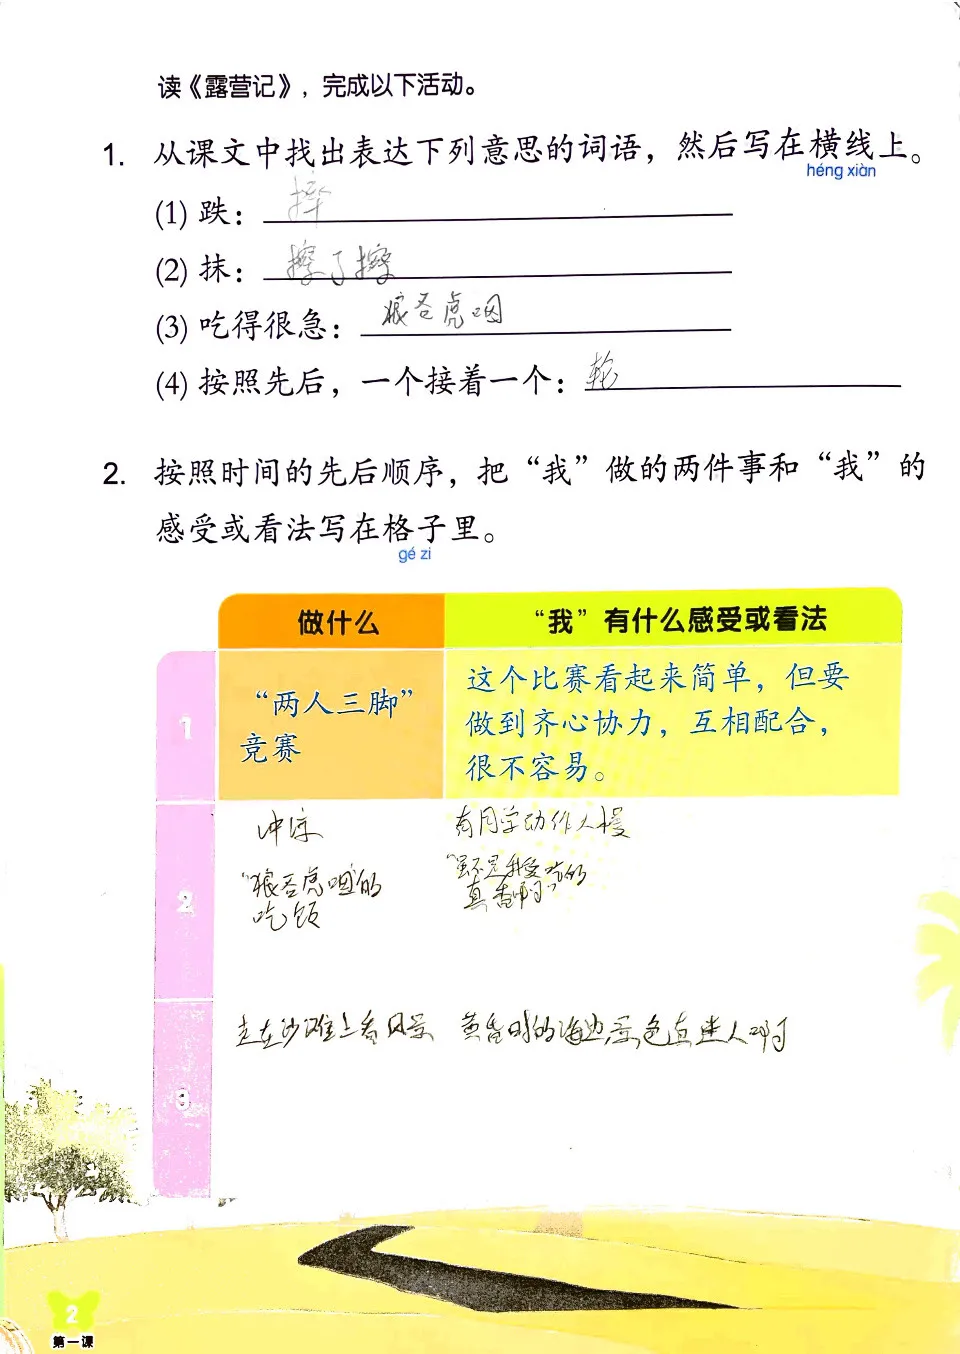 读《露营记》，完成以下活动。
1. 从课文中找出表达下列意思的词语，然后写在横线上。
héng xiàn
(1) 跌：摔
(2) 抹：擦了擦
(3) 吃得很急：狼吞虎咽
(4) 按照先后，一个接着一个：轮
2. 按照时间的先后顺序，把“我”做的两件事和“我”的
感受或看法写在格子里。
gé zi
做什么 “我”有什么感受或看法
1
“两人三脚”
竞赛
这个比赛看起来简单，但要
做到齐心协力，互相配合，
很不容易。
2
冲凉
有同学动作人慢
“狼吞虎咽”的
吃饭
不是我爱吃的
真香啊”
3
走在沙滩上看风景
黄昏时的海边，景色真迷人啊
2
第一课